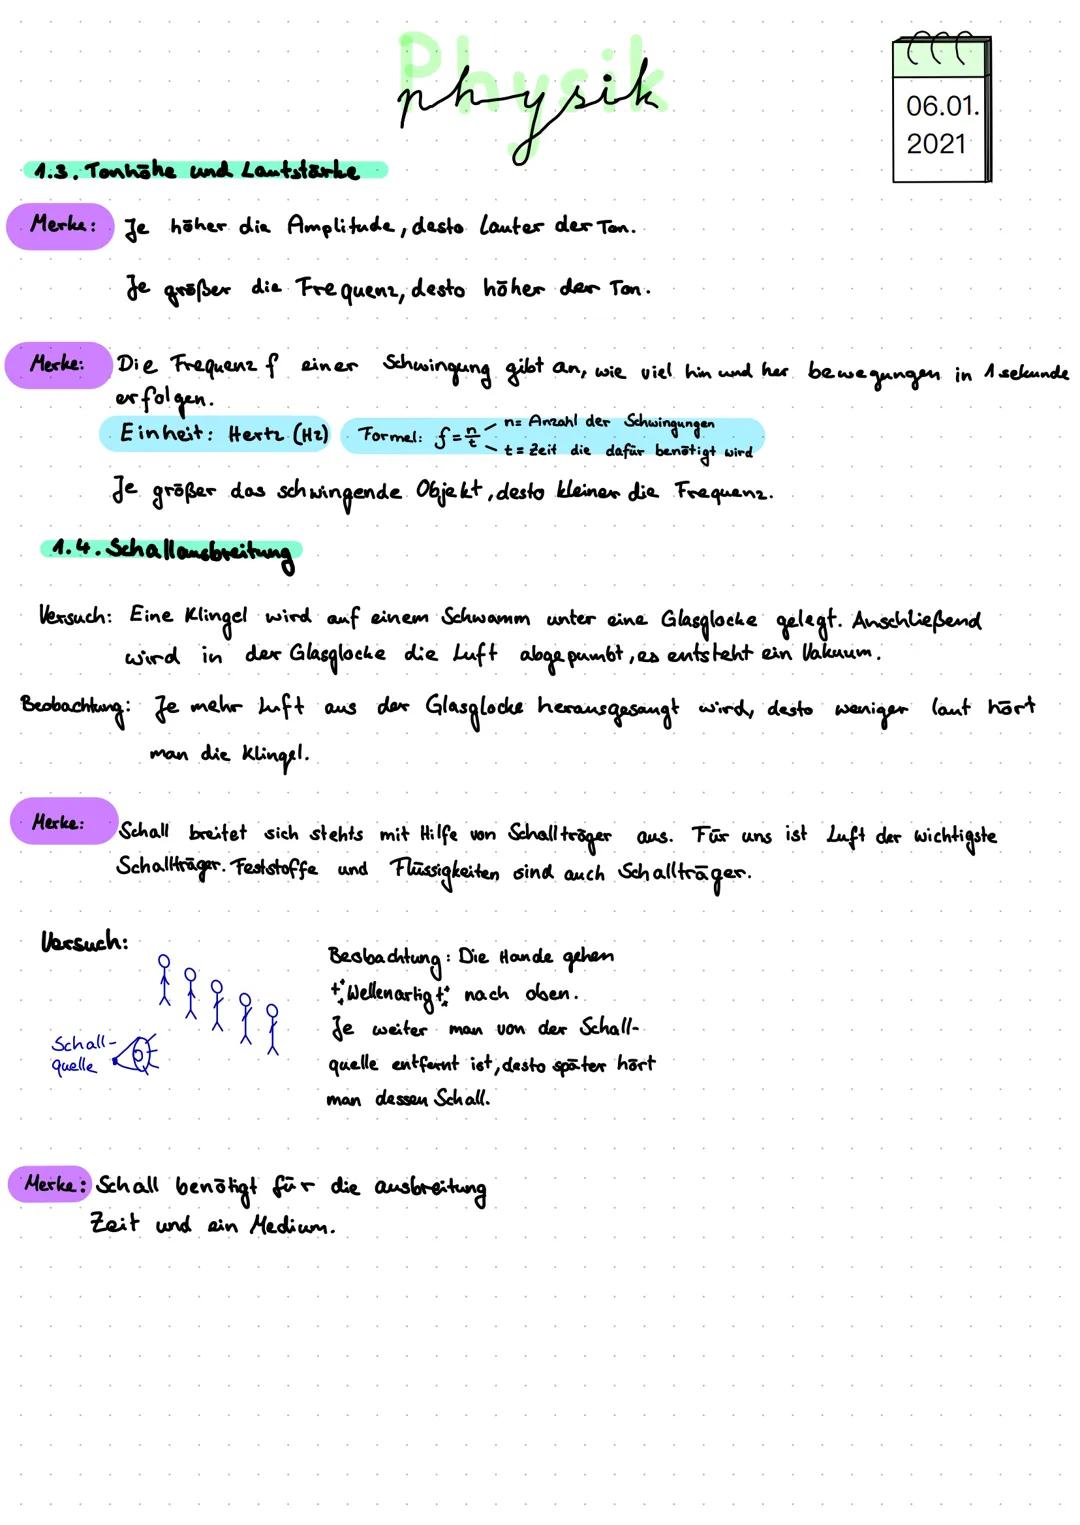 Physik
physik
06.01.
2021
1.3. Tonhöhe und Lautstärke
Merke: Je höher die Amplitude, desto Lauter der Ton.
Je größer die Frequenz, desto höher der Ton.
Merke: Die Frequenz f einer Schwingung gibt an, wie viel hin und her bewegungen in 1 sekunde
erfolgen.
Einheit: Hertz (Hz) Formel: f = n/t n= Anzahl der Schwingungen
t = Zeit die dafür benötigt wird
Je größer das schwingende Objekt, desto kleiner die Frequenz.
1.4. Schallausbreitung
Versuch: Eine Klingel wird auf einem Schwamm unter eine Glasglocke gelegt. Anschließend
wird in der Glasglocke die Luft abgepumbt, es entsteht ein Vakuum.
Beobachtung: Je mehr Luft aus der Glasglocke herausgesaugt wird, desto weniger laut hört
man die Klingel.
Merke: Schall breitet sich stehts mit Hilfe von Schallträger aus. Für uns ist Luft der wichtigste
Schallträger. Feststoffe und Flüssigkeiten sind auch Schallträger.
Versuch:
Schall-
quelle
Beobachtung: Die Hände gehen
Wellenartig nach oben.
Je weiter man von der Schall-
quelle entfernt ist, desto später hört
man dessen Schall.
Merke: Schall benötigt für die ausbreitung
Zeit und ein Medium.